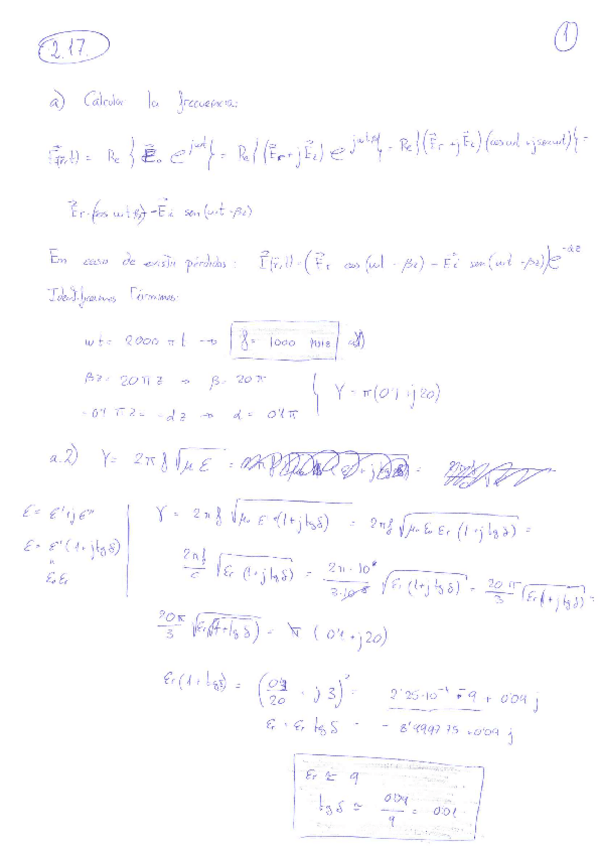 2.17. 1
a) Calcular la frecuencia:
E(r,t) = Re { E₀ e^{jωt} } = Re { (Er + jEi) e^{jωt} } = Re { (Er + jEi) (cos ωt + j sen ωt) } =
Er · (cos ωt βz) - Ei sen (ωt - βz)
En caso de existir pérdidas: E(r,t) = (Er cos (ωt - βz) - Ei sen (ωt - βz)) e^{-αz}
Identificamos Términos:
ωt = 2000 πt → f = 1000 MHz
βz = 20πz → β = 20π
-0'1 πz = -αz → α = 0'1π
γ = π(0'1 + j20)
a.2) γ = 2πf √με =
ε = ε' + jε''
ε = ε' (1 + j tg δ)
ε₀εr
γ = 2πf √μ₀ ε' (1 + j tg δ) = 2πf √μ₀ ε₀ εr (1 + j tg δ) =
2πf/c √εr (1 + j tg δ) = 2π·10⁹/3·10⁸ √εr (1 + j tg δ) = 20π/3 √εr (1 + j tg δ) =
20π/3 √εr (1 + tg δ) = π (0'1 + j20)
εr (1 + tg δ) = (0'3/20 + j3)² = 2'25·10⁻⁴ - 9 + 0'09 j
εr + εr tg δ = - 8'999775 + 0'09 j
εr ≃ 9
tg δ ≃ 0'09/9 = 0'01